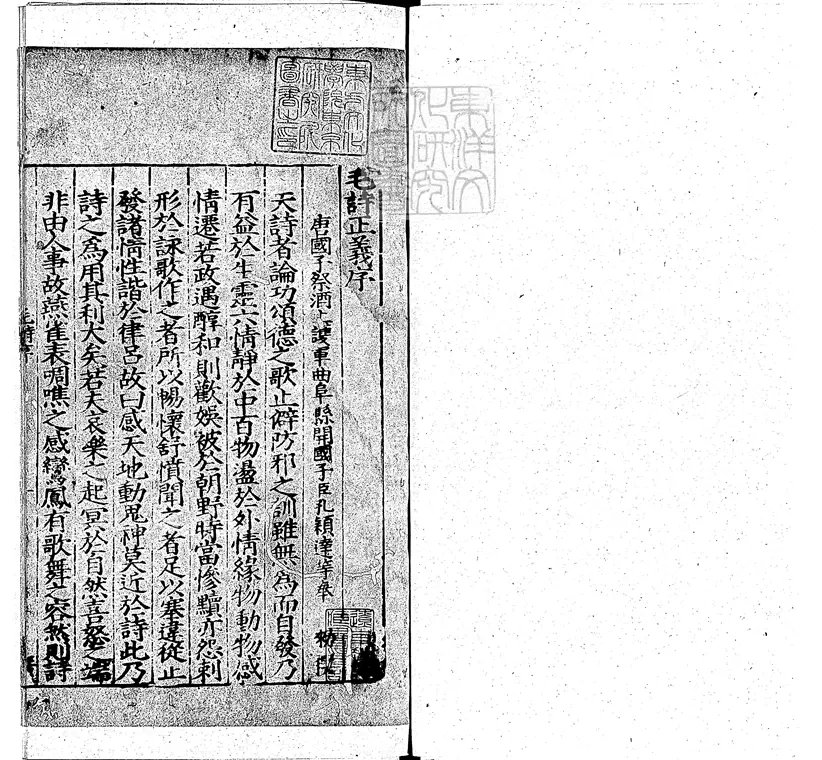 東洋文
化研究
所圖書
東方文化
學院東京
研究所
圖書之印
毛詩正義序
唐國子祭酒上護軍曲阜縣開國子臣孔穎達等奉
勑撰
夫詩者論功頌德之歌止僻防邪之訓雖無為而自發乃
有益於生靈六情靜於中百物盪於外情緣物動物感
情遷若政遇醇和則歡娛被於朝野時當慘黷亦怨刺
形於詠歌作之者所以暢懷舒憤聞之者足以塞違從正
發諸情性諧於律呂故曰感天地動鬼神莫近於詩此乃
詩之為用其利大矣若夫哀樂之起冥於自然喜怒之端
非由人事故燕雀表啁噍之感鸞鳳有歌舞之容然則詩